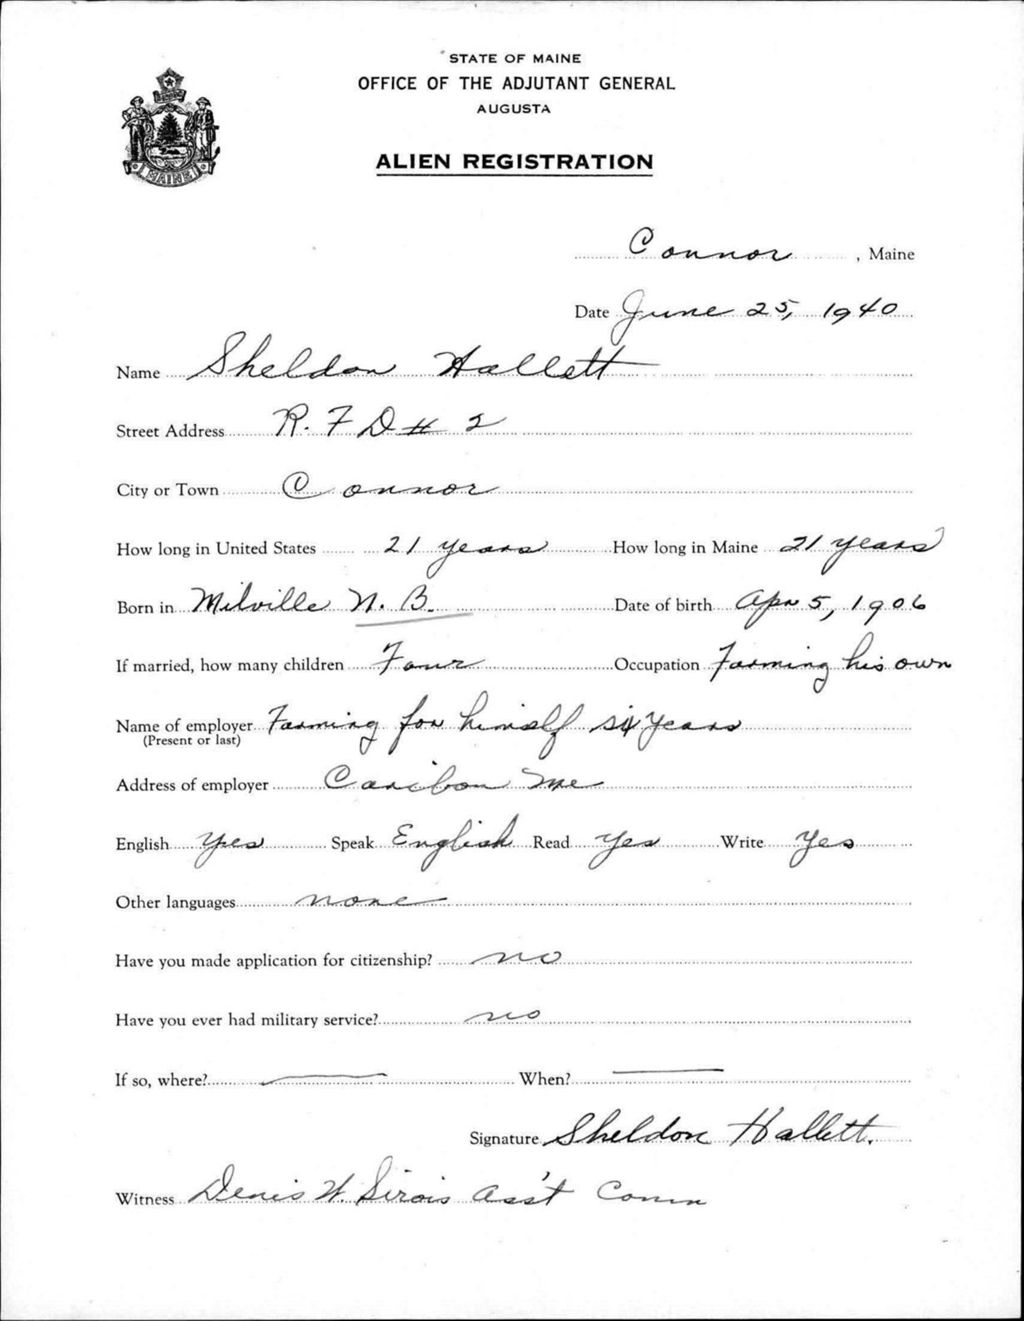 STATE OF MAINE
OFFICE OF THE ADJUTANT GENERAL
AUGUSTA
ALIEN REGISTRATION
MAINE
Connor, Maine
Date June 25, 1940
Name Sheldon Hallett
Street Address R. F D # 2
City or Town Connor
How long in United States 21 years How long in Maine 21 years
Born in Milville N. B. Date of birth Apr 5, 1906
If married, how many children Four Occupation Farming his own
Name of employer Farming for himself six years
(Present or last)
Address of employer Caribou Me
English Yes Speak English Read Yes Write Yes
Other languages none
Have you made application for citizenship? no
Have you ever had military service? no
If so, where? When?
Signature Sheldon Hallett.
Witness Denis W. Sirois Ass't Comm